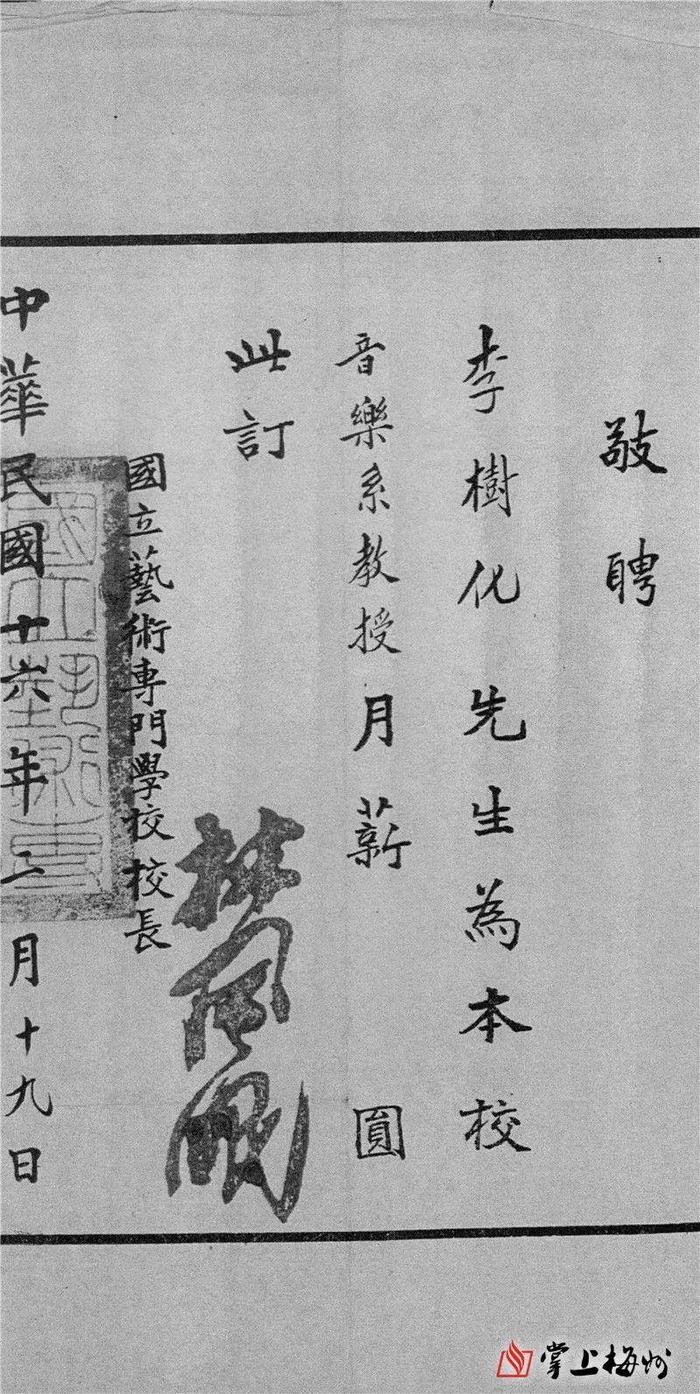 敬聘
李樹化先生為本校
音樂系教授月薪 圓
此訂
國立藝術專門學校校長
林風眠
中華民國十六年二月十九日
掌上梅州